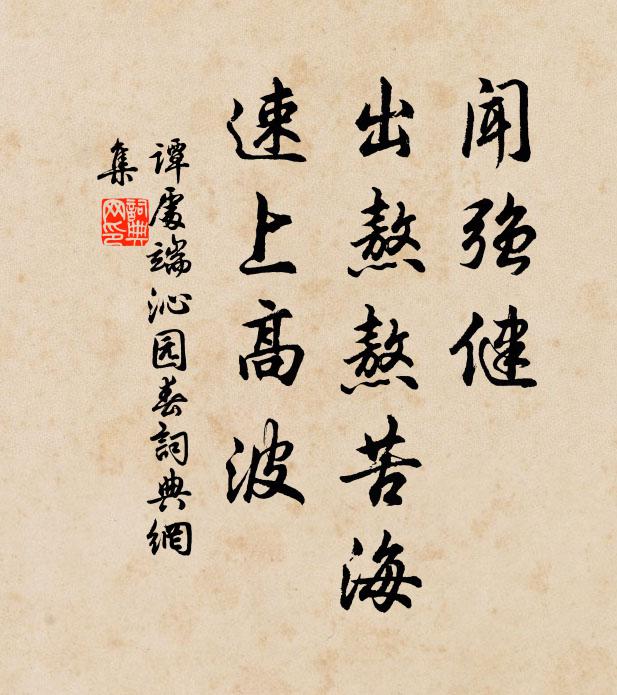 闻强健
出熬熬苦海
速上高波
谭處端沁园春詞典網
集
詞典
网印